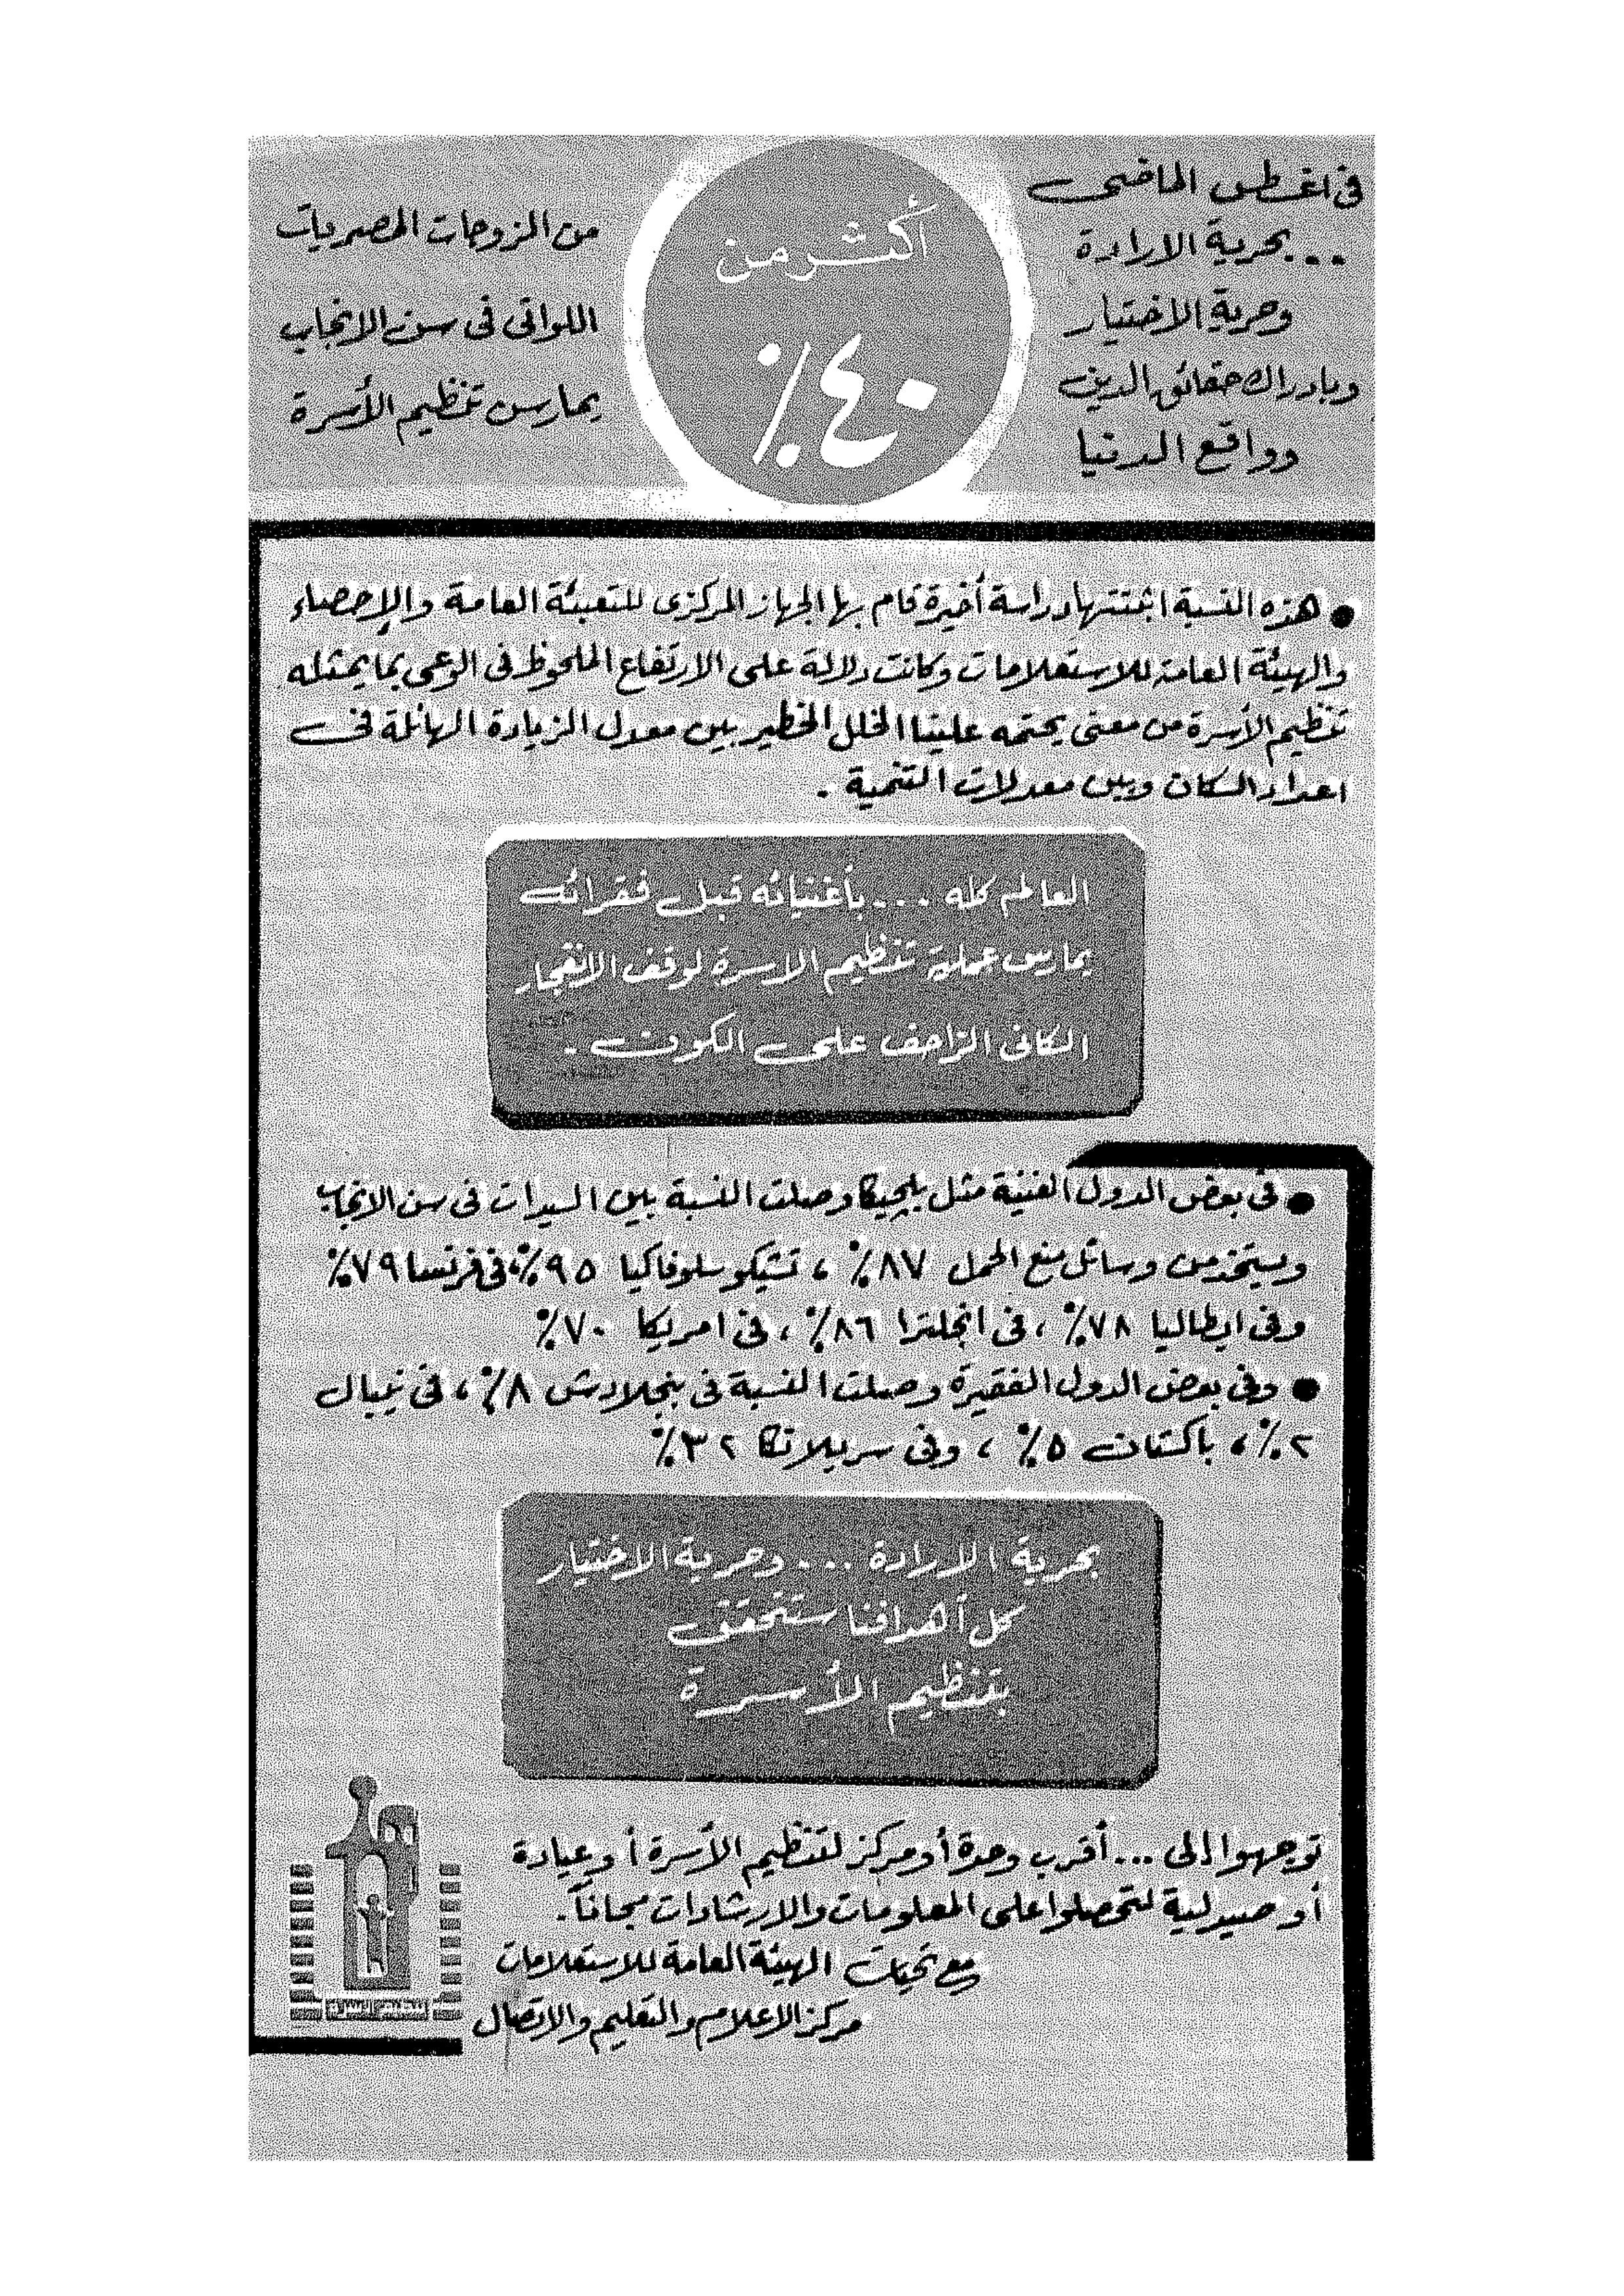 فى اغسطس الماضى
...بحرية الارادة
وحرية الاختيار
وبادراك حقائق الدين
وواقع الدنيا
أكثر من
٤٠٪
من الزوجات المصريات
اللواتى فى سن الانجاب
يمارسن تنظيم الأسرة
● هذه النسبة اثبتتها دراسة أخيرة قام بها الجهاز المركزى للتعبئة العامة والإحصاء
والهيئة العامة للاستعلامات وكانت دلالة على الارتفاع الملحوظ فى الوعى بما يمثله
تنظيم الأسرة من معنى يحتمه علينا الخلل الخطير بين معدل الزيادة الهائلة فى
اعداد السكان وبين معدلات التنمية .
العالم كله ... بأغنيائه قبل فقرائه
يمارس عملية تنظيم الاسرة لوقف الانفجار
الكانى الزاحف على الكون .
● فى بعض الدول الغنية مثل بلجيكا وصلت النسبة بين السيدات فى سن الانجاب
ويستخدمن وسائل منع الحمل ٨٧٪ ، تشيكوسلوفاكيا ٩٥٪، فى فرنسا ٧٩٪
وفى ايطاليا ٧٨٪ ، فى انجلترا ٨٦٪ ، فى امريكا ٧٠٪
● وفى بعض الدول الفقيرة وصلت النسبة فى بنجلادش ٨٪ ، فى نيبال
٢٪ ، باكستان ٥٪ ، وفى سريلانكا ٣٢٪
بحرية الارادة ... وحرية الاختيار
كل أهدافنا ستتحقق
بتنظيم الأسرة
توجهوا إلى ... أقرب وحدة أو مركز لتنظيم الأسرة أو عيادة
أو صيدلية لتحصلوا على المعلومات والارشادات مجاناً .
مع تحيات الهيئة العامة للاستعلامات
مركز الاعلام والتعليم والاتصال
تنظيم الأسرة